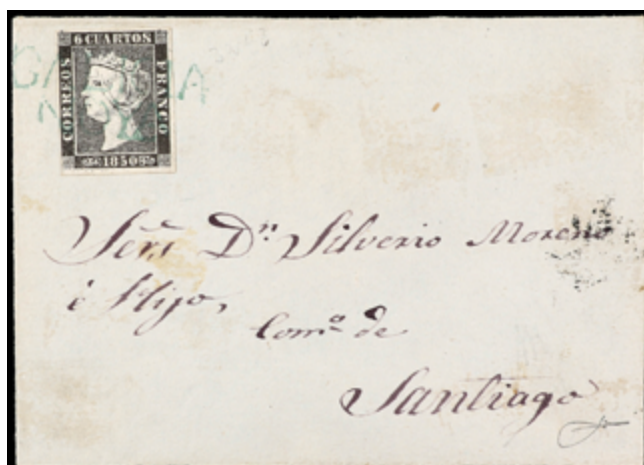 6 CUARTOS
CORREOS
FRANCO
1850
Señs Dn. Silverio Moreno
é Hijo,
Como. de
Santiago